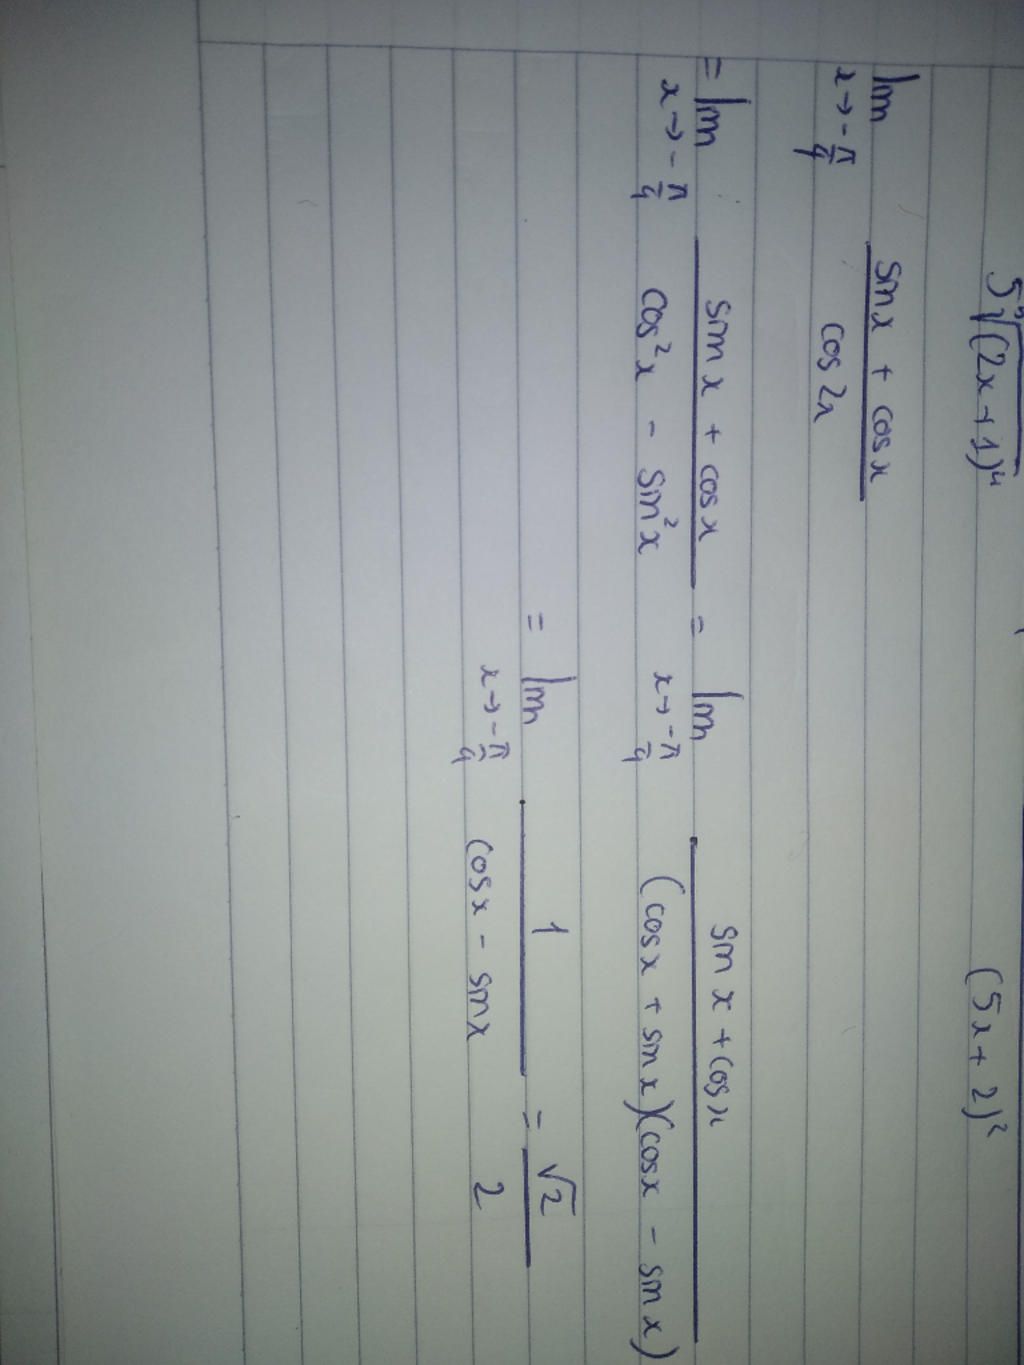 5 ⁵√(2x+1)⁴ (5x+2)²
lim x→-π/4 (sin x + cos x)/(cos 2x)
= lim x→-π/4 (sin x + cos x)/(cos²x - sin²x) = lim x→-π/4 (sin x + cos x)/((cos x + sin x)(cos x - sin x))
= lim x→-π/4 1/(cos x - sin x) = √2/2